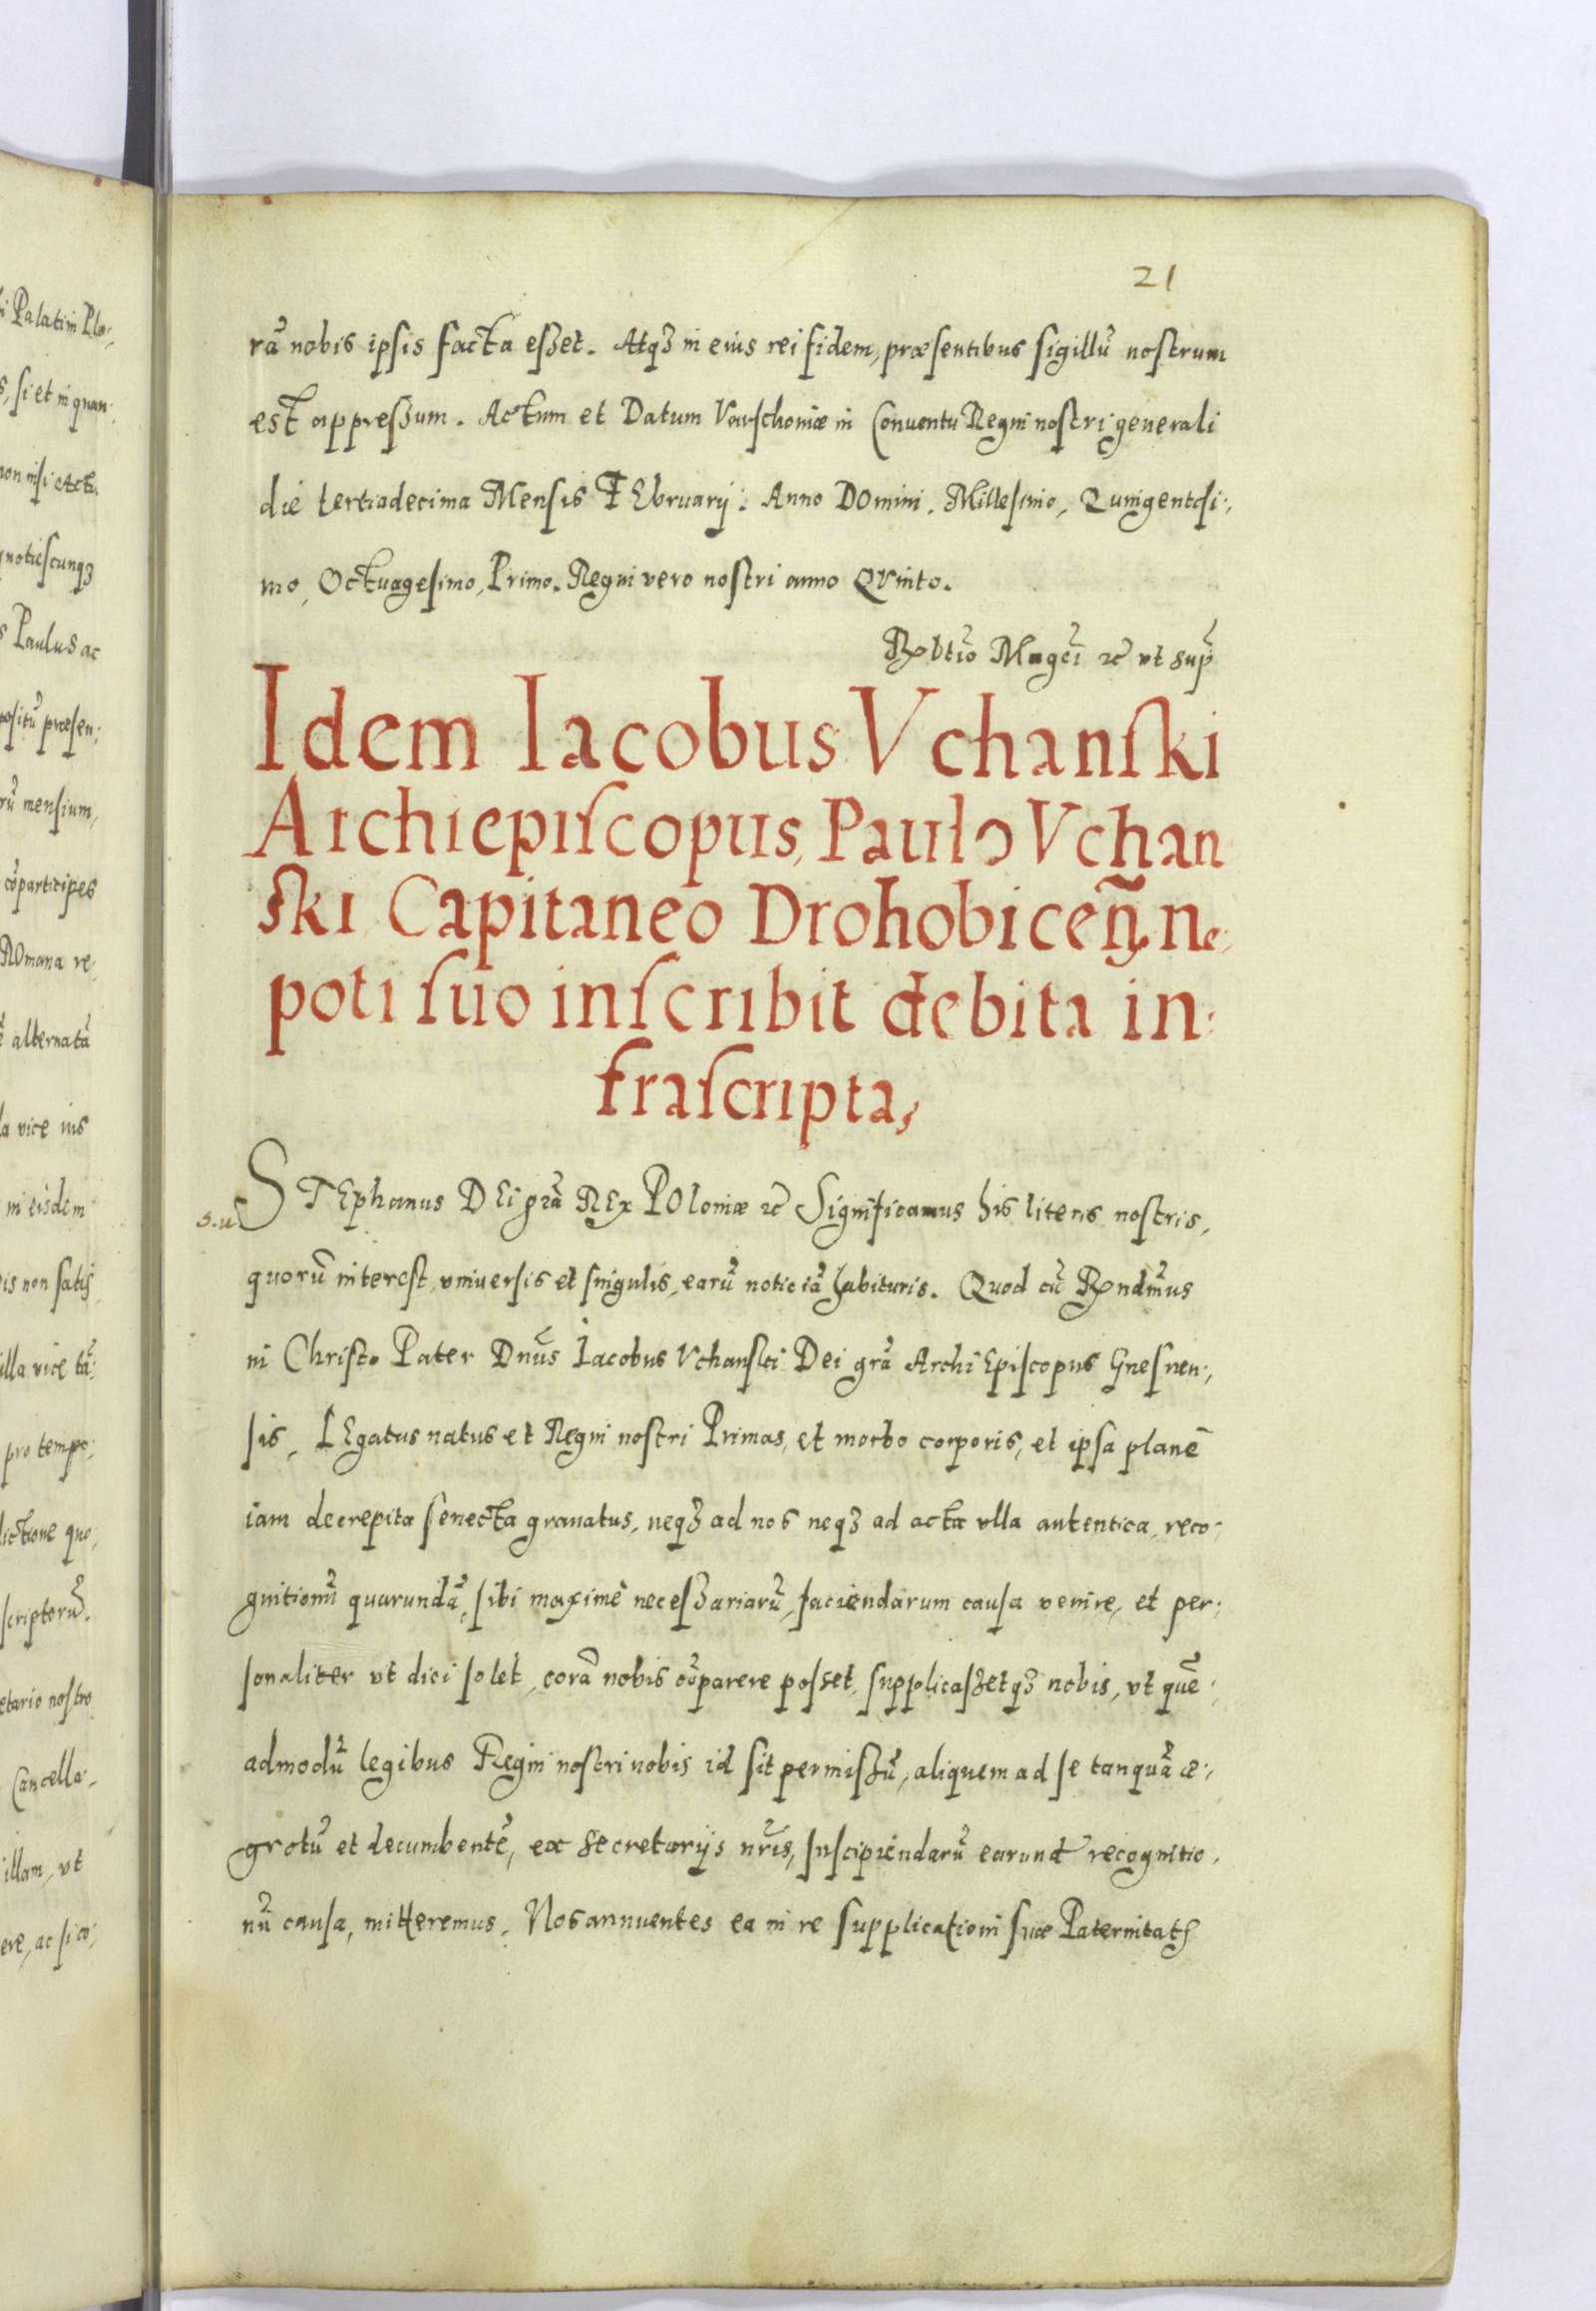 21
rã nobis ipsis facta eszet. Atqʒ in eius rei fidem, præsentibus sigillũ nostrum
est appreszum. Actum et Datum Varschoniæ in Conuentu Regni nostri generali
die tertiadecima Mensis FEbruarij: Anno DOmini. Millesimo, Quingentesi:,
mo, Octuagesimo, Primo. Regni vero nostri anno QVinto.
Rҏbtio Magci ꝛc̃ vt sup̃
Idem Iacobus Vchanſki
Archiepiſcopus, Paulo Vchan
ſki Capitaneo Drohobiceñ. ne,
poti ſuo inſcribit debita in:
fraſcripta,
STEphanus DEi grã REx POloniæ ꝛc̃ Significamus his literis nostris,
quorũ interest, vniuersis et singulis, earũ noticiã habituris. Quod cũ Rҏndmus
in Christo Pater Dnũs Iacobus Vchanski Dei grã ArchiEpiscopus Gnesnen:,
sis, LEgatus natus et Regni nostri Primas, et morbo corporis, et ipsa planè
iam decrepita senecta grauatus, neqʒ ad nos neqʒ ad acta vlla autentica, reco:
gnitionũ quarundã, sibi maximè neceszariarũ, faciendarum causa venire, et per:
sonaliter vt dici solet, corã nobis cõparere posset, supplicaszetqʒ nobis, vt quẽ:
admodũ legibus Regni nostri nobis id sit permiszũ, aliquem ad se tanquã æ:,
grotũ et decumbentẽ, ex secretarijs nr̃is, suscipiendarũ earund recognitio,
nũ causa, mitteremus. Nos annuentes ea in re supplicationi suæ Paternitatꝭ
i Palatini Plo:,
s, si et in quan:
non nisi Acta.
quotiescunqʒ
s Paulus ac
positũ præsen:
rũ mensium,
cõparticipes
ROmana re:
alternatã
la vice ius
in eisdem
is non satis
illa vice tã:
pro tempo:
dictione quo,
scriptorũ.
etario nostro
Cancella:,
illam, vt
ere, ac si co: